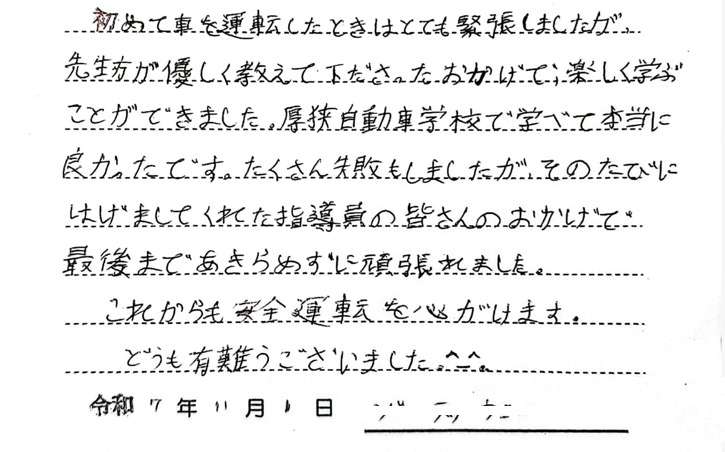 初めて車を運転したときはとても緊張しましたが、
先生方が優しく教えて下ださったおかげで、楽しく学ぶ
ことができました。厚狭自動車学校で学べて本当に
良かったです。たくさん失敗もしましたが、そのたびに
はげましてくれた指導員の皆さんのおかげで
最後まであきらめずに頑張れました。
これからも安全運転を心がけます。
どうも有難うございました^_^。
令和7年11月1日